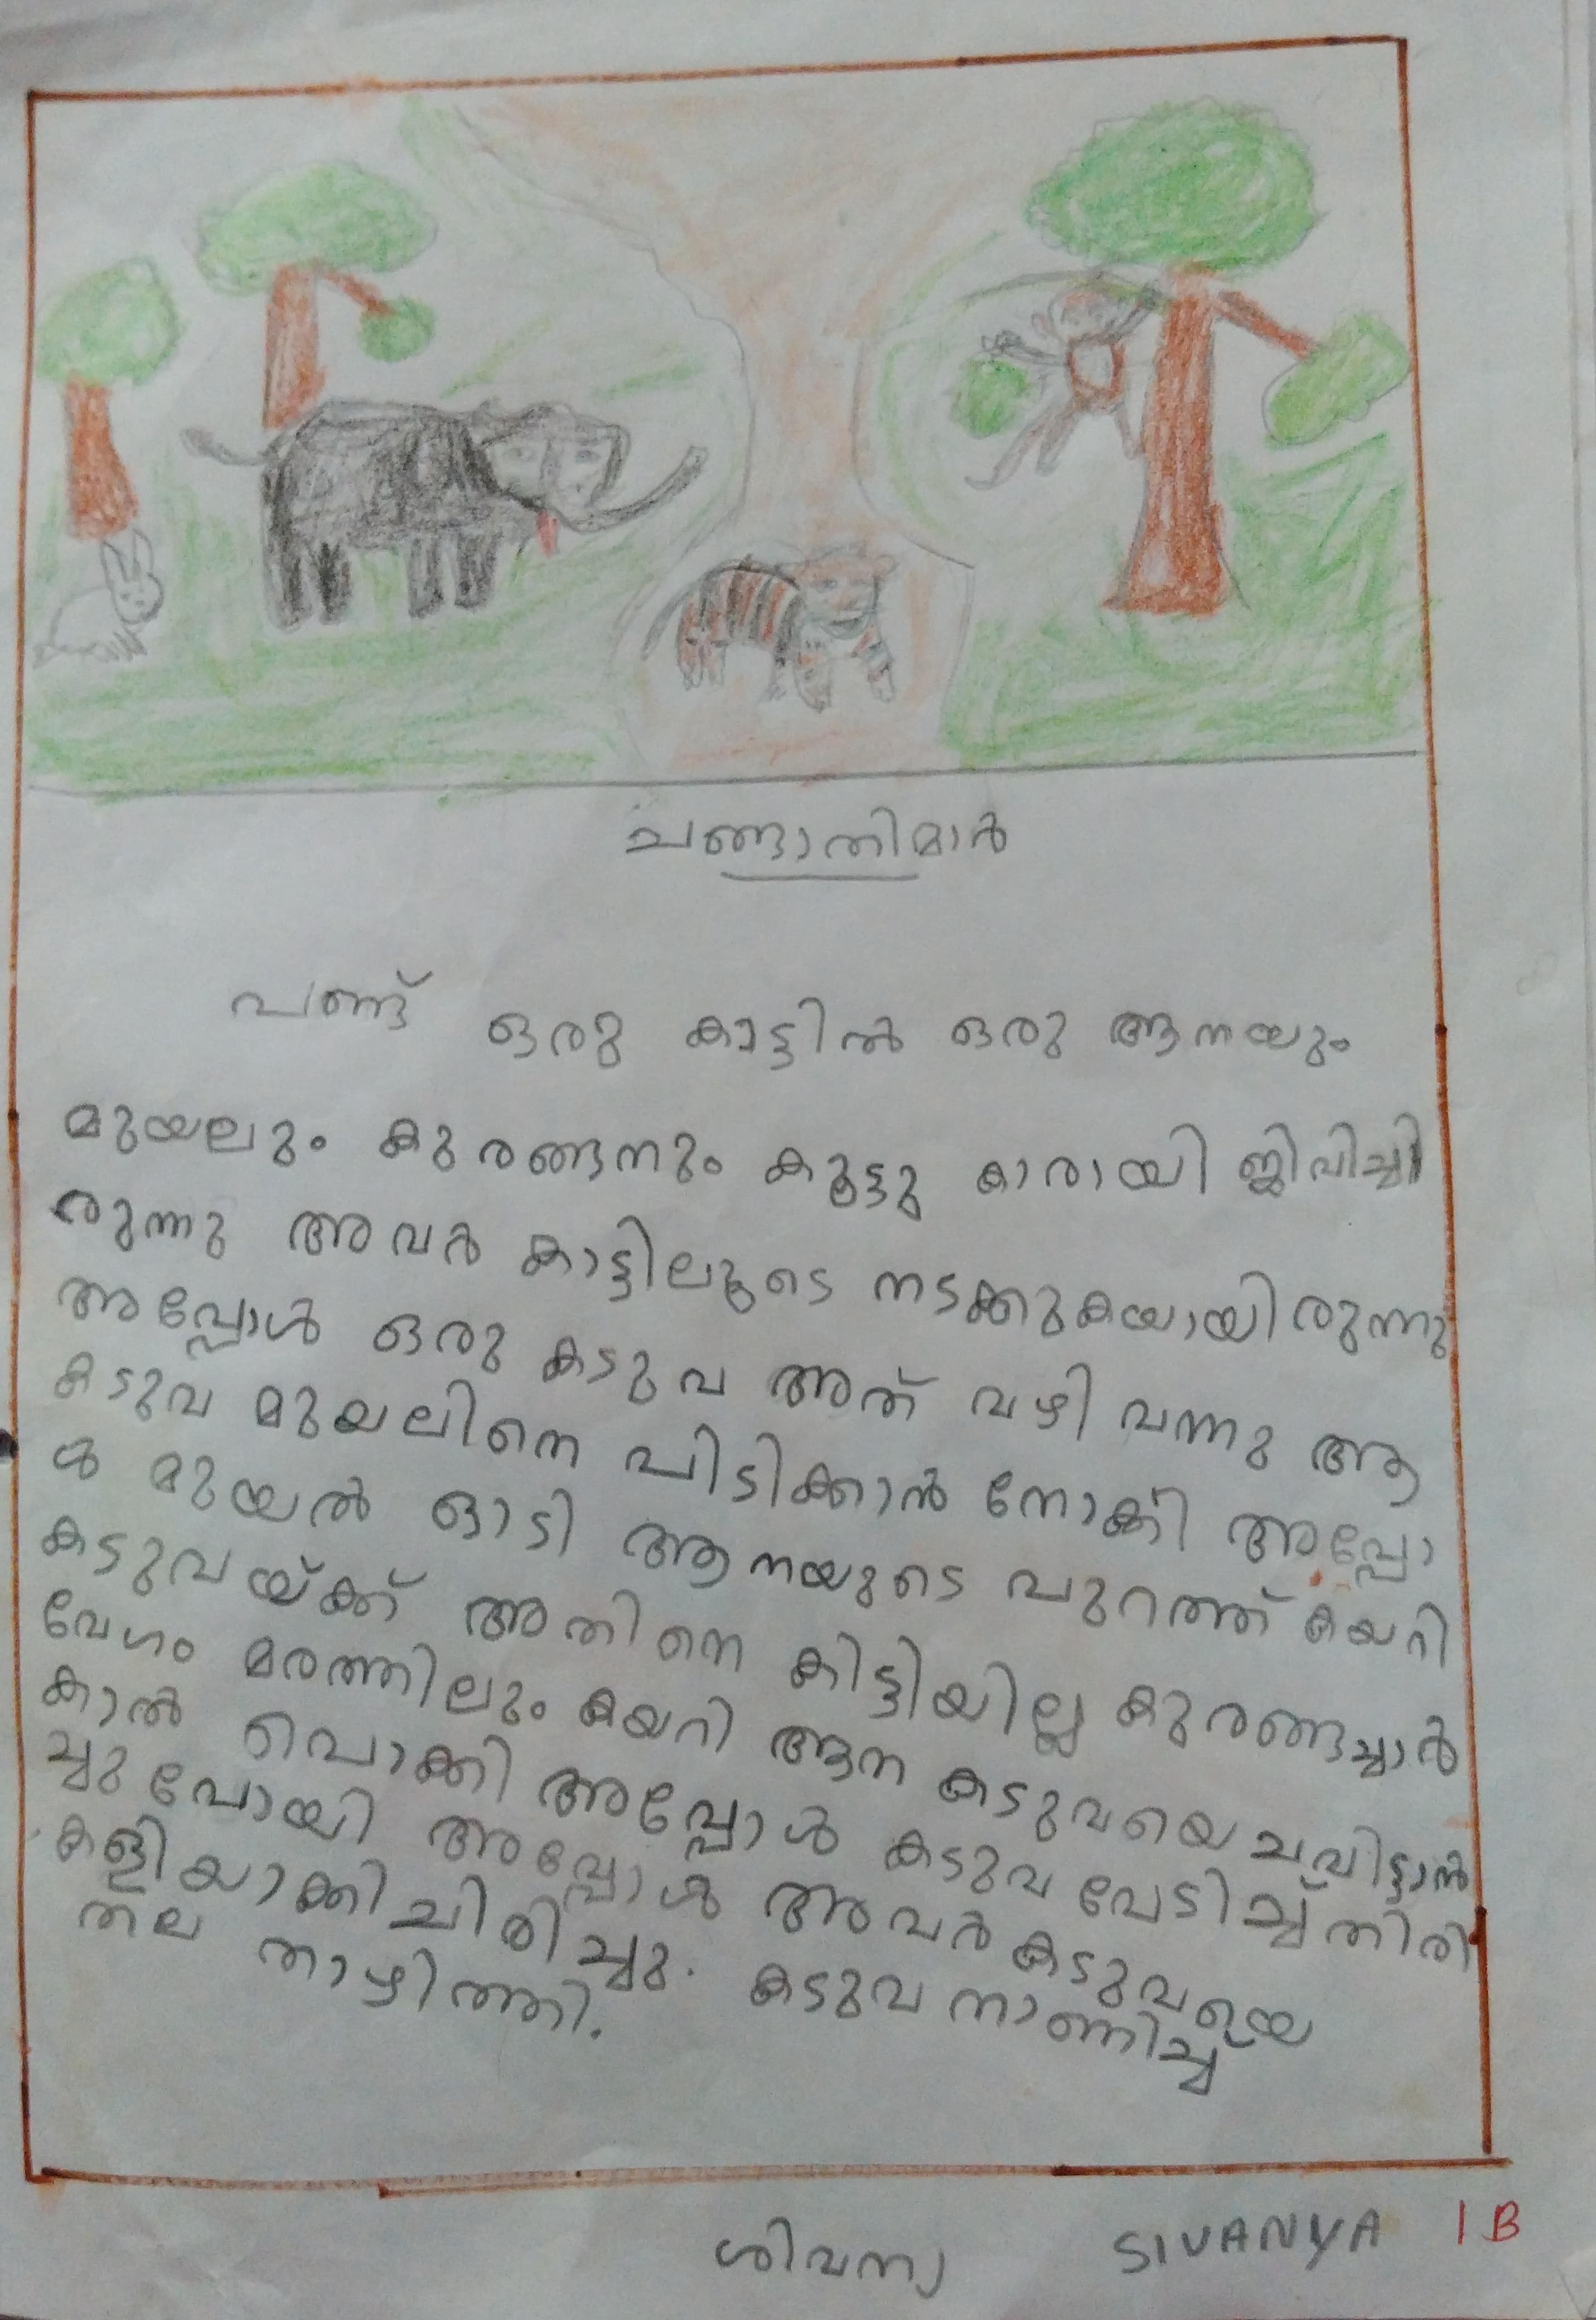 ചങ്ങാതിമാർ
പണ്ട് ഒരു കാട്ടിൽ ഒരു ആനയും
മുയലും കുരങ്ങനും കൂട്ടു കാരായി ജീവിച്ചി
രുന്നു അവർ കാട്ടിലൂടെ നടക്കുകയായിരുന്നു
അപ്പോൾ ഒരു കടുവ അത് വഴി വന്നു ആ
കടുവ മുയലിനെ പിടിക്കാൻ നോക്കി അപ്പോ
ൾ മുയൽ ഓടി ആനയുടെ പുറത്ത് കയറി
കടുവയ്ക്ക് അതിനെ കിട്ടിയില്ല കുരങ്ങച്ചാർ
വേഗം മരത്തിലും കയറി ആന കടുവയെ ചവിട്ടാൻ
കാൽ പൊക്കി അപ്പോൾ കടുവ പേടിച്ച് തിരി
ച്ചു പോയി അപ്പോൾ അവർ കടുവയെ
കളിയാക്കി ചിരിച്ചു. കടുവ നാണിച്ച്
തല താഴിത്തി.
ശിവന്യ SIVANYA 1 B